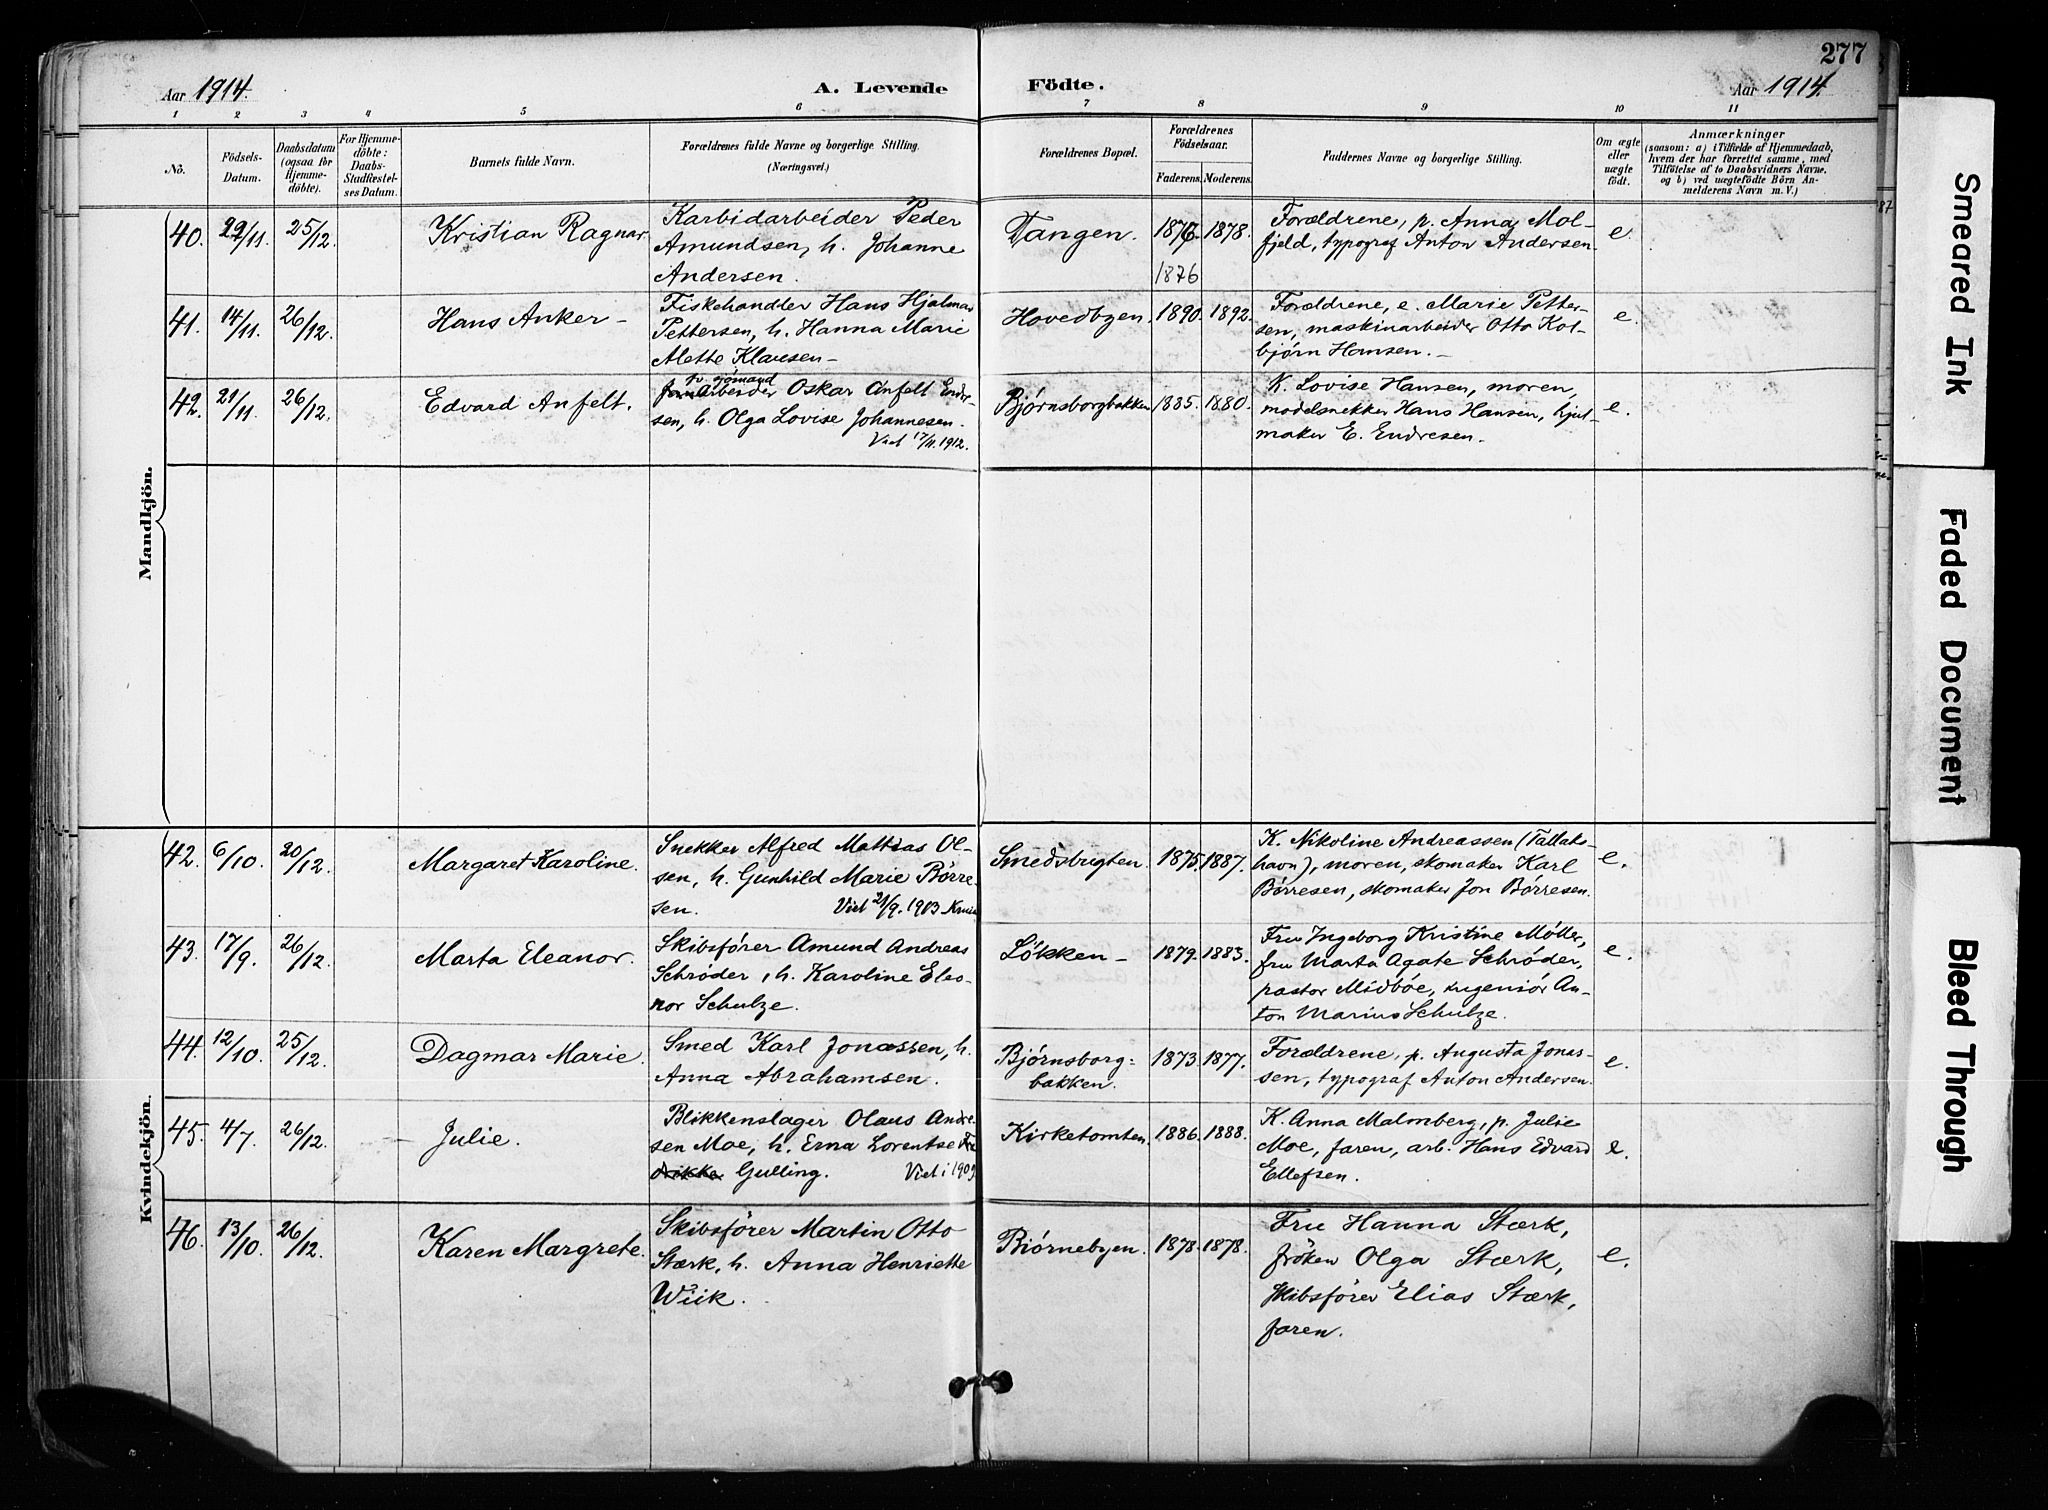 277
Aar 1914.
A. Levende
Födte.
Aar 1914.
1 2 3 4 5 6 7 8 9 10 11
No.
Födsels-
Datum.
Daabsdatum
(ogsaa for
Hjemme-
döbte).
For Hjemme-
döbte:
Daabs-
Stadfæstel-
ses Datum.
Barnets fulde Navn.
Forældrenes fulde Navne og borgerlige Stilling.
(Næringsvei.)
Forældrenes Bopæl.
Forældrenes
Födselsaar.
Faderens. Moderens.
Faddernes Navne og borgerlige Stilling.
Om ægte
eller
uægte
födt.
Anmærkninger
(saasom: a) i Tilfælde af Hjemmedaab,
hvem der har forrettet samme, med
Tilföielse af to Daabsvidners Navne,
og b) ved uægtefödte Börn An-
melderens Navn m. V.)
Mandkjön.
40. 29/11. 25/12. Kristian Ragnar
Karbidarbeider Peder
Amundsen, h. Johanne
Andersen.
Tangen. 1876. 1878.
1876
Forældrene, p. Anna Mol-
fjeld, typograf Anton Andersen
e.
41. 14/11. 26/12. Hans Anker –
Fiskehandler Hans Hjalmar
Pettersen, h. Hanna Marie
Alette Klausen –
Hovedbyen. 1890. 1892.
Forældrene, e. Marie Petter-
sen, maskinarbeider Otto Kol-
bjørn Hansen. –
e.
42. 21/11. 26/12. Edvard Anfelt.
Oskar Anfelt Endre-
sen, h. Olga Lovise Johannesen.
Viet 17/11. 1912.
Bjørnsborgbakken 1885. 1880.
K. Lovise Hansen, moren,
modelsnekker Hans Hansen, hjul-
maker E. Endresen.
e.
Kvindekjön.
42. 6/10. 20/12. Margaret Karoline.
Snekker Alfred Mattias Ol-
sen, h. Gunhild Marie Børre-
sen. Viet 21/9. 1903
Smedsbugten. 1875. 1887.
K. Nikoline Andreassen (Tallaks-
havn), moren, skomaker Karl
Børresen, skomaker Jon Børresen.
e.
43. 17/9. 26/12. Marta Eleanor.
Skibsfører Amund Andreas
Schrøder, h. Karoline Eleo-
nor Schulze.
Løkken – 1879. 1883.
Fru Ingeborg Kristine Møller,
fru Marta Agate Schrøder,
pastor Midbøe, ingeniør An-
ton Marius Schulze.
e.
44. 12/10. 25/12. Dagmar Marie.
Smed Karl Jonassen, h.
Anna Abrahamsen.
Bjørnsborg-
bakken. 1873. 1877.
Forældrene, p. Augusta Jonas-
sen, typograf Anton Andersen.
e.
45. 4/7. 26/12. Julie.
Blikkenslager Olaus Andre-
sen Moe, h. Erna Lorentse Fre
drikke Gulling. Viet i 1909
Kirketomten 1886. 1888.
K. Anna Malmberg, p. Julie
Moe, faren, arb. Hans Edvard
Ellefsen.
e.
46. 13/10. 26/12. Karen Margrete.
Skibsfører Martin Otto
Stærk, h. Anna Henriette
Wiik.
Bjørnebyen. 1878. 1878.
Fru Hanna Stærk,
frøken Olga Stærk,
skibsfører Elias Stærk,
faren.
e.
Smeared Ink
Faded Document
Bleed Through